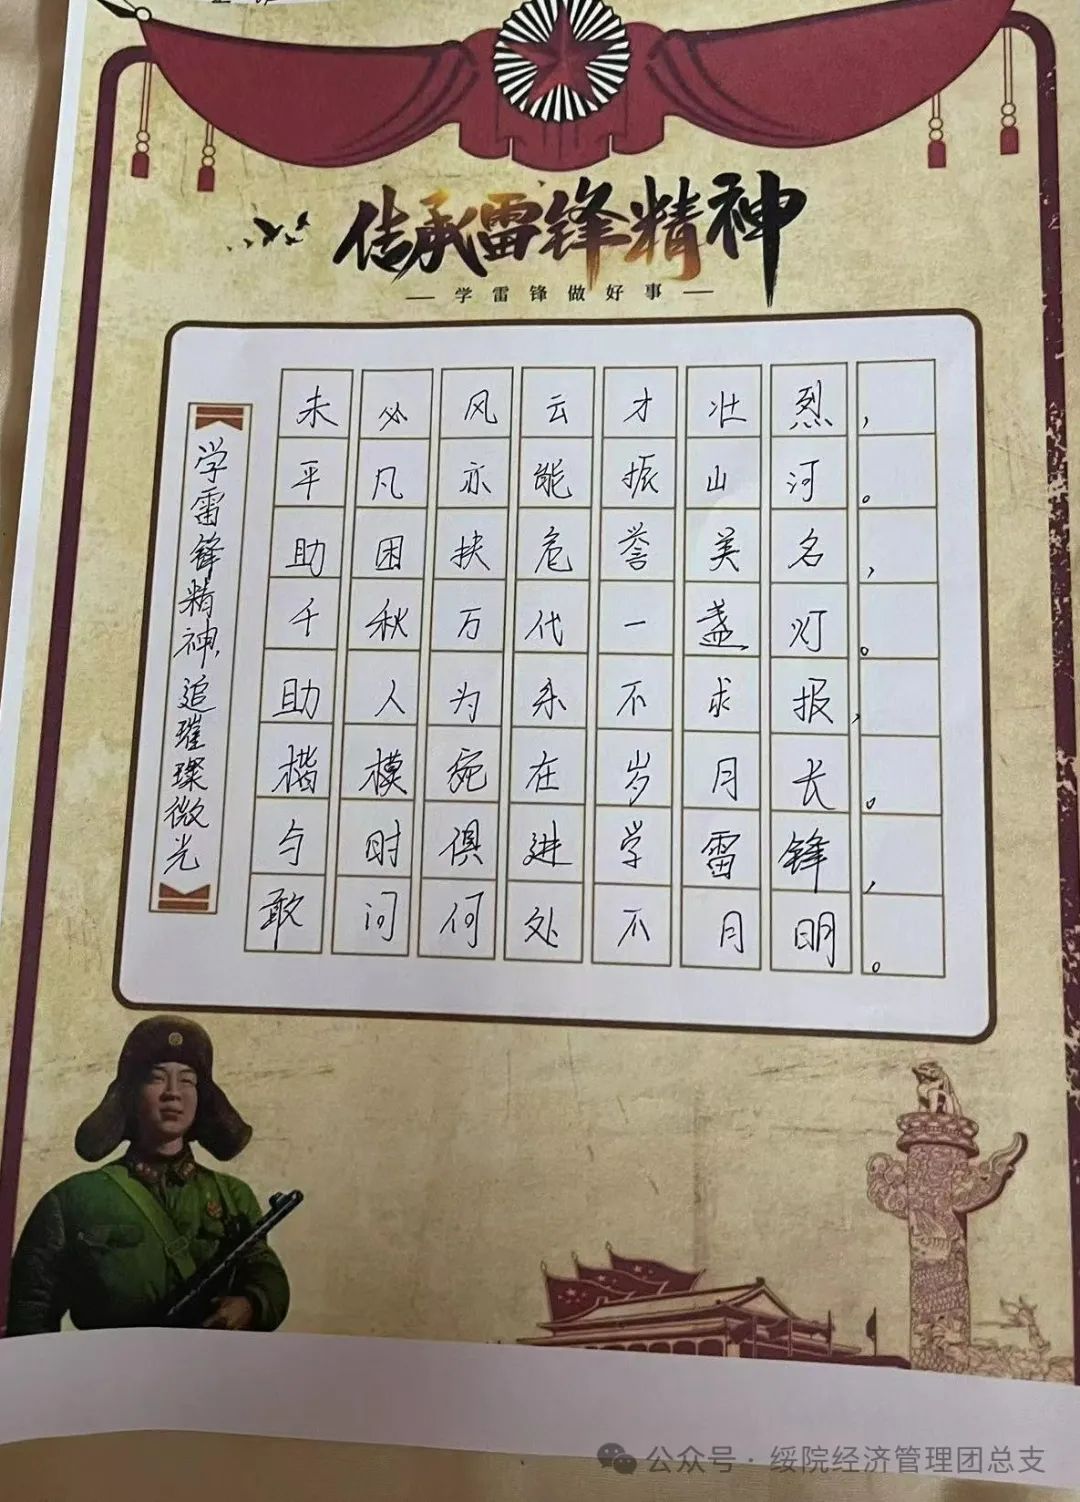 传承雷锋精神
学雷锋做好事
学雷锋精神,追璀璨微光
未必风云才壮烈,
平凡亦能振山河。
助困扶危誉美名,
千秋万代一盏灯。
助人为乐不求报,
楷模宛在岁月长。
与时俱进学雷锋,
敢问何处不月明。
公众号·绥院经济管理团总支